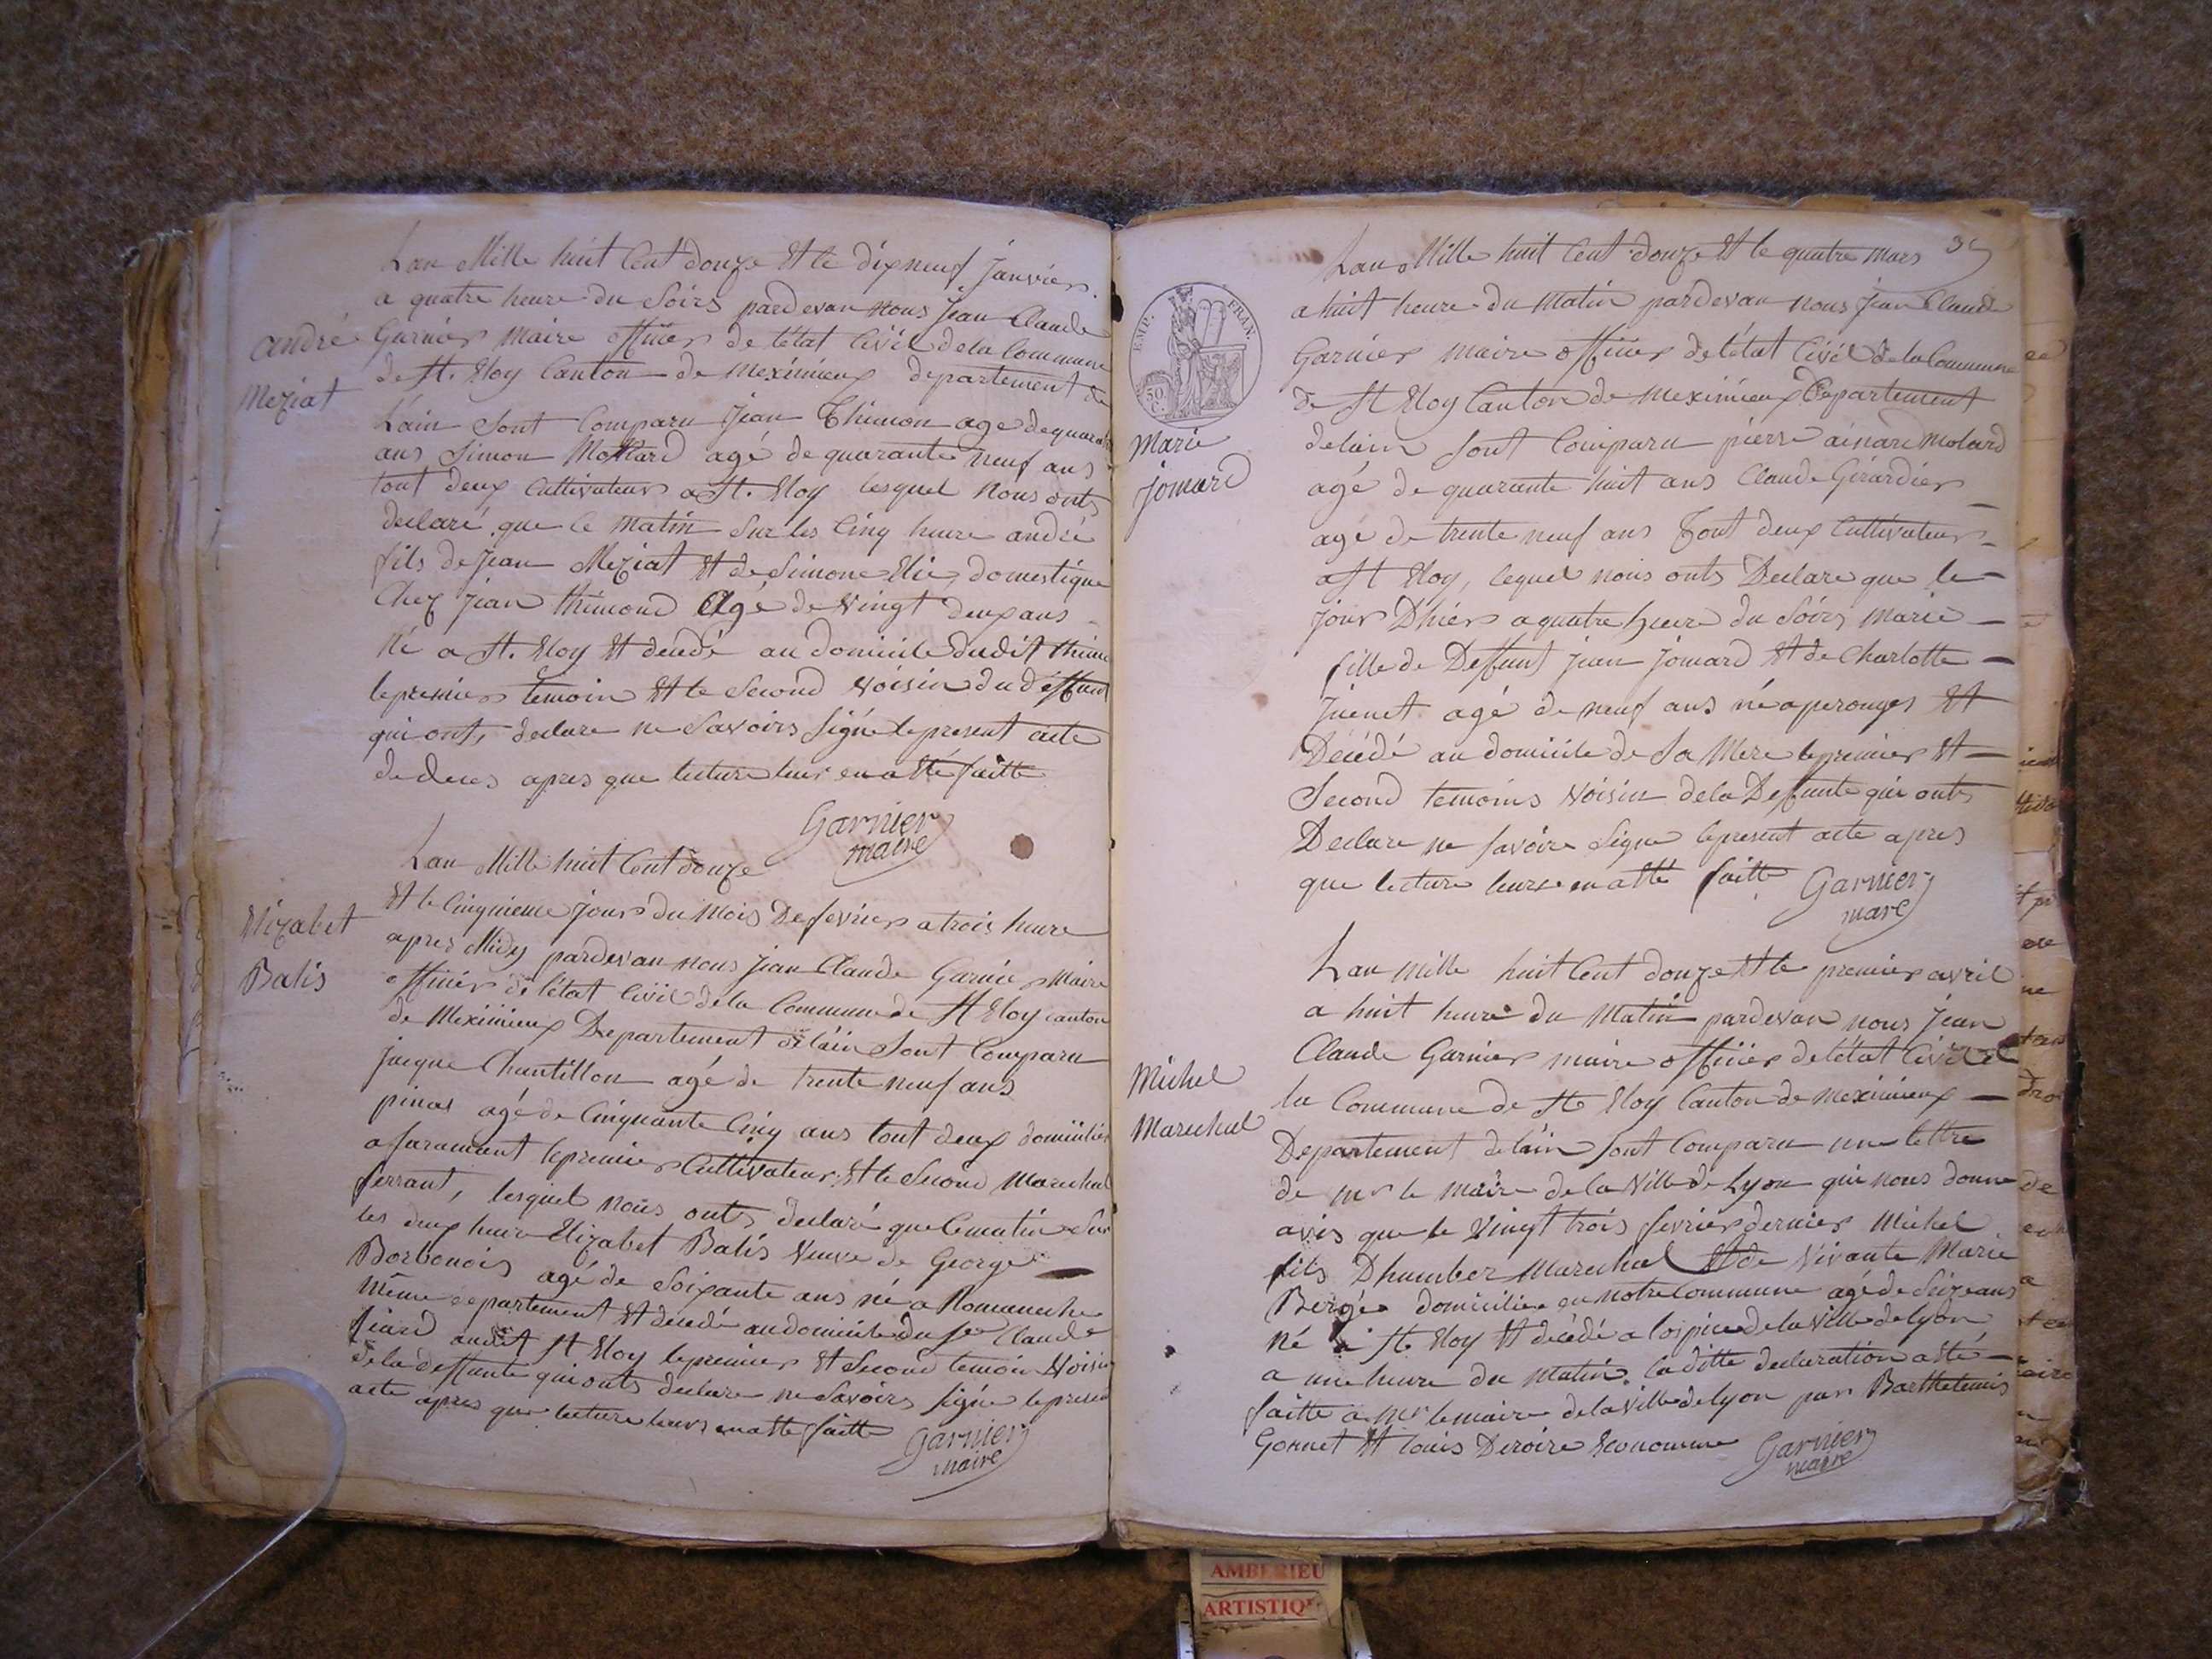 Lan Mille huit Cent douze Et le dixneuf Janvier
a quatre heure du Soirs pardevan nous Jean Claude
andré
Garnier Maire officier de létat Civil dela Commune
de St. Eloy Canton de Meximieux departement de
Meziat
Lain Sont Comparu Jean Thimon age de quarante
ans Simon Mollard agé de quarante neuf ans
tout deux Cultivateur a St. Eloy lesquel nous onts
declaré que ce matin Sur les Cinq heure andré
fils de Jean Meziat Et de Simone Elie domestique
Chez Jean thimond Agé de Vingt deux ans
Né a St. Eloy Et decedé au domicile dudit
le premier temoin Et le Second Voisin du deffunt
qui onts declare ne Savoirs Signé le present acte
de deces apres que lecture leur en a Eté faitte
Garnier
maire
Lan Mille huit Cent douze
Et le Cinquieme jour du Mois De fevrier a trois heure
Elizabet
apres Midy pardevan nous Jean Claude Garnier Maire
Balis
officier de létat Civil dela Commune de St Eloy canton
de Meximieux Departement de lain Sont Comparu
jacque Chantillon agé de trente neuf ans
pinas agé de Cinquante Cinq ans tout deux domicilié
a faramant le premier Cultivateur Et le Second Marechal
ferrant, lesquel nous onts declaré que ce matin Sur
les deux heure Elizabet Balis Veuve de George
Borbonois agé de Soixante ans né a Romaneche
même departement Et decedé au domicile du Sr Claude
audit St Eloy le premier Et Second temoin Voisin
dela deffunte qui onts declare ne Savoirs Signé le present
acte apres que lecture leurs en a Eté faitte
Garnier
maire
Lan Mille huit Cent douze Et le quatre Mars
a huit heure du Matin pardevan nous Jean Claude
EMP. FRAN.
50. C.
Garnier maire officier de létat Civil de la Commune
de St Eloy Canton de Meximieux Departement
Marie
delain Sont Comparu pierre ainard Molard
jomard
agé de quarante huit ans Claude Girardier
agé de trente neuf ans Tout deux Cultivateur
a St Eloy, lequel nous onts Declare que le
jour D'hier a quatre heure du Soirs Marie
fille de Deffunt Jean Jomard Et de Charlotte
Juenet agé de neuf ans né a perouges Et
Décédé au domicile de Sa Mere le premier Et
Second temoins Voisin de la Deffunte qui onts
Declare ne Savoire Signe le present acte apres
que lecture leurs en a Eté faitte
Garnier
mare
Lan mille huit Cent douze Et le premier avril
a huit heure du Matin pardevan nous Jean
Claude Garnier maire officier de létat Civil de
Michel
la Commune de St Eloy Canton de Meximieux
Marechal
Departement de lain Sont Comparu une lettre
de mr le maire de la Ville de Lyon qui nous donne
avis que le Vingt trois fevrier dernier Michel
fils Dhumber Marechal Et de Vivante Marie
Bergé domiciliée en notre Commune agé de Seize ans
Né a St. Eloy Et décédé a lospice de la Ville de lyon
a une heure du Matin. la ditte declaration a Eté
faitte a Mr le maire de la Ville de lyon par Barthelemis
Gonnet Et louis Deroire Econome
Garnier
maire
AMBERIEU
ARTISTIQ